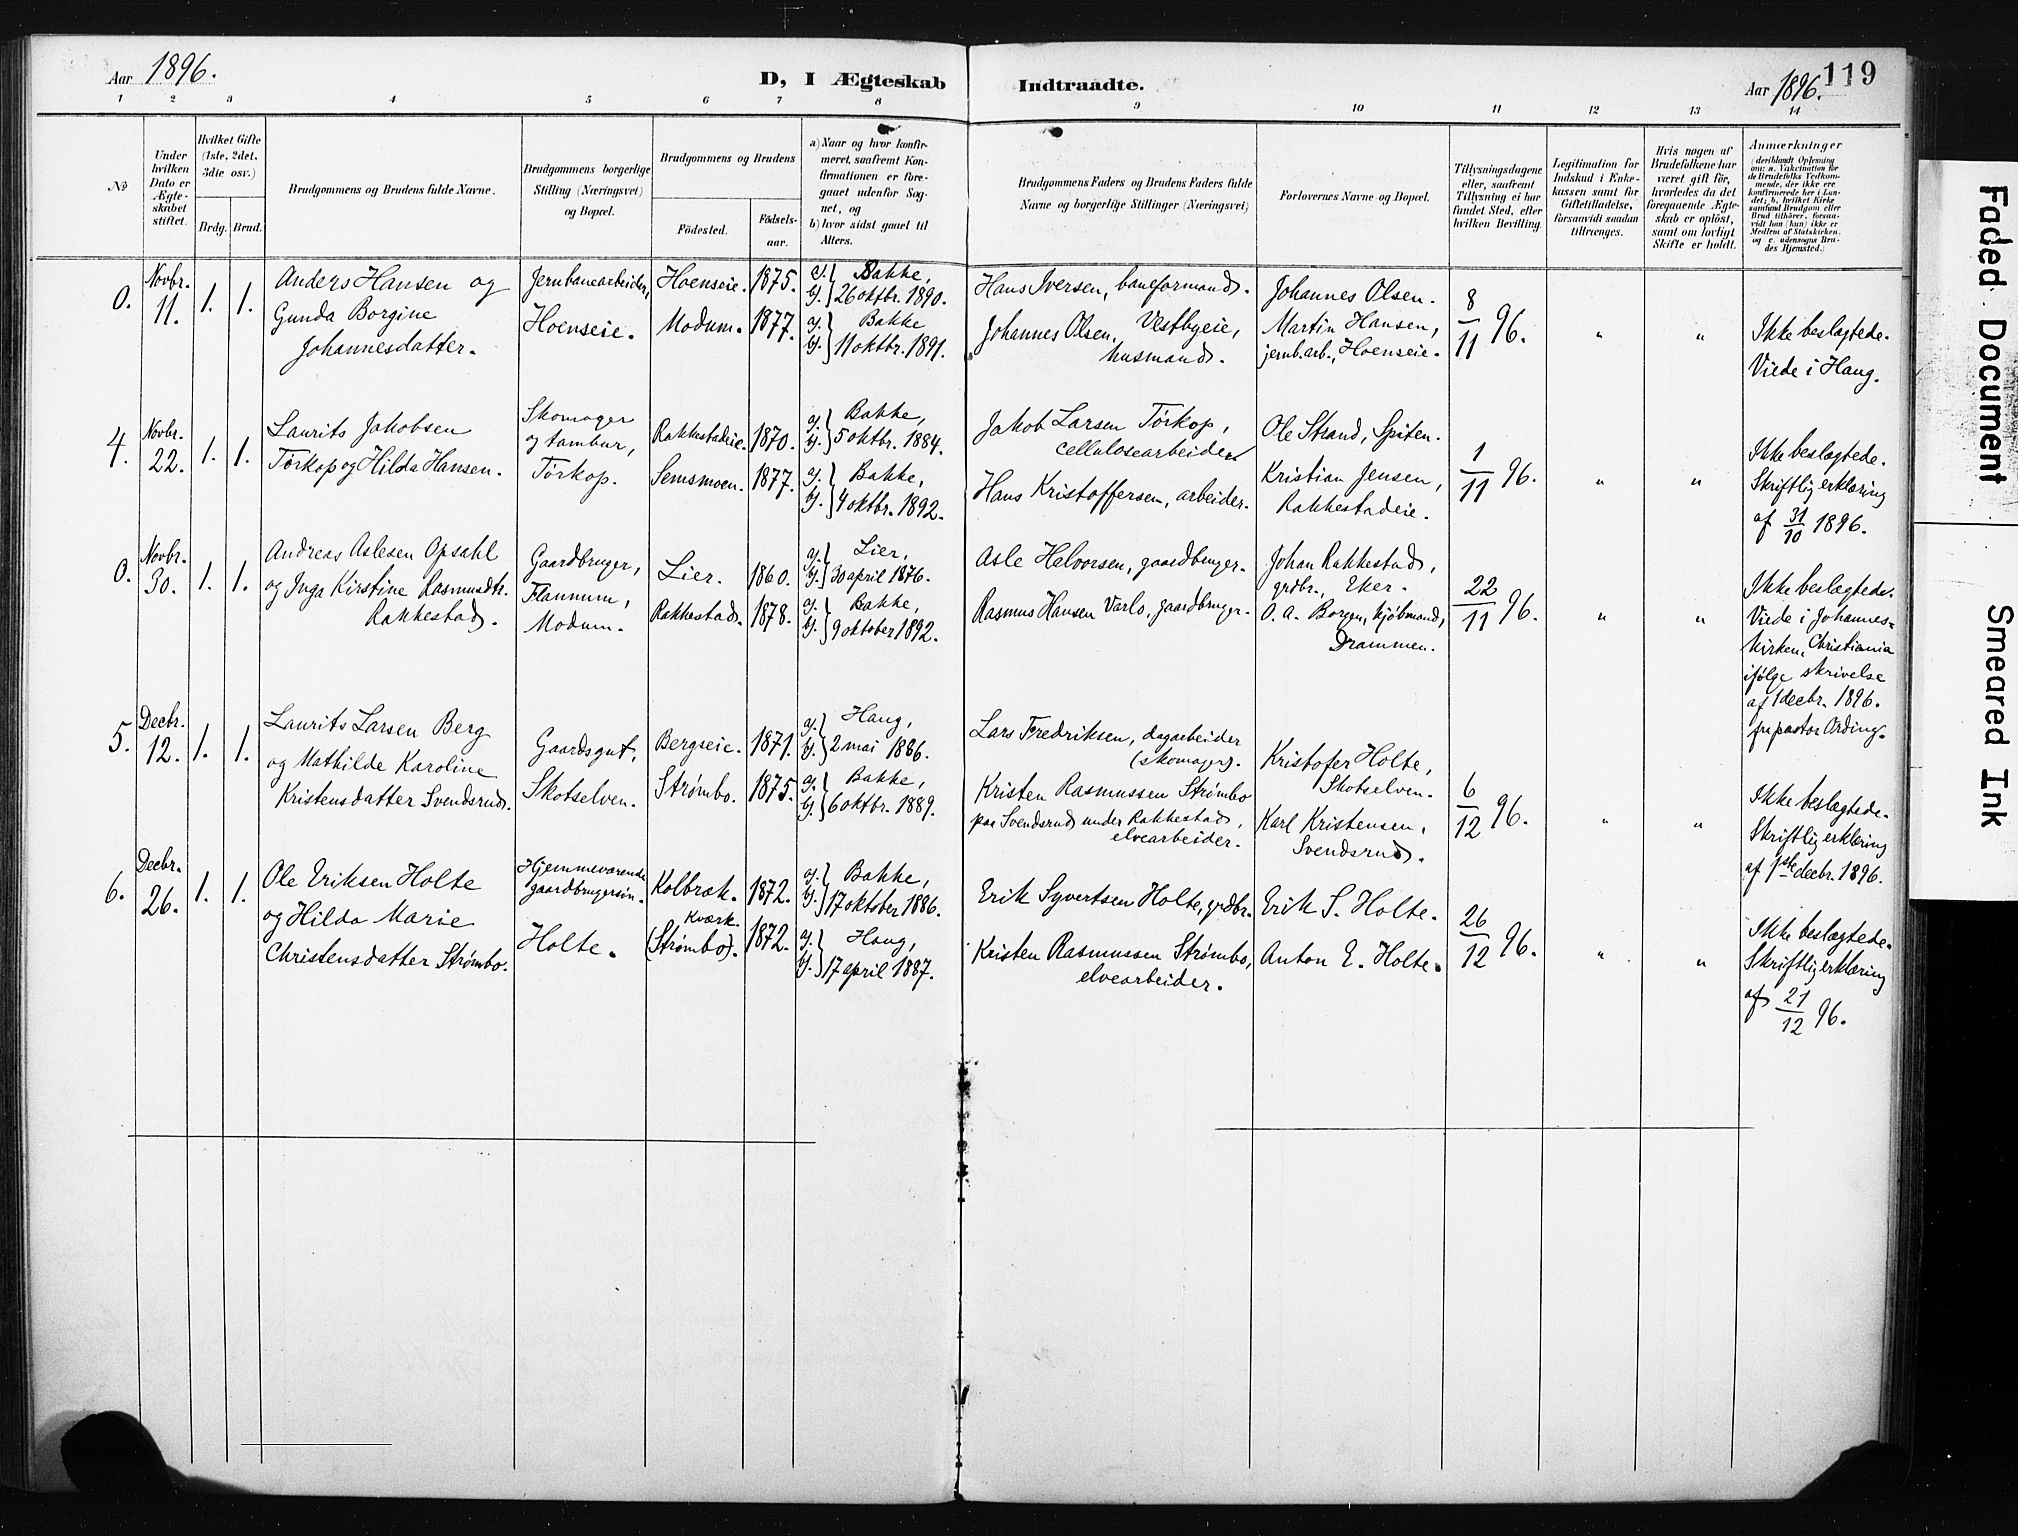 Aar 1896.
D, I Ægteskab Indtraadte.
Aar 1896.
119
1 2 3 4 5 6 7 8 9 10 11 12 13 14
No
Under hvilken Dato er Ægteskabet stiftet.
Hvilket Gifte (1ste, 2det, 3die osv.)
Brdg. Brud.
Brudgommens og Brudens fulde Navne.
Brudgommens borgerlige Stilling (Næringsvei) og Bopæl.
Brudgommens og Brudens
Fødested.
Fødselsaar.
a) Naar og hvor konfirmeret, saafremt Konfirmationen er foregaaet udenfor Sognet, og
b) hvor sidst gaaet til Alters.
Brudgommens Faders og Brudens Faders fulde Navne og borgerlige Stillinger (Næringsvei)
Forlovernes Navne og Bopæl.
Tillysningsdagene eller, saafremt Tillysning ei har fundet Sted, efter hvilken Bevilling.
Legitimation for Indskud i Enkekassen samt for Giftetilladelse, forsaavidt saadan tiltrænges.
Hvis nogen af Brudefolkene har været gift før, hvorledes da det foregaaende Ægteskab er opløst, samt om lovligt Skifte er holdt.
Anmærkninger (deriblandt Oplysning om: a. Vakcination for de Brudefolks Vedkommende, der ikke ere konfirmerede her i Landet; b. hvilket Kirkesamfund Brudgom eller Brud tilhører, forsaavidt han (hun) ikke er Medlem af Statskirken, og c. udensogns Brudes Hjemsted.)
0. Novbr. 11. 1. 1.
Anders Hansen og
Gunda Borgine
Johannesdatter.
Jernbanearbeider,
Hoenseie.
Hoenseie. 1875.
Modum. 1877.
a. b. Bakke,
26 oktbr. 1890.
a. b. Bakke
11 oktbr. 1891.
Hans Iversen, baneformand.
Johannes Olsen, Vestbyeie,
husmand.
Johannes Olsen.
Martin Hansen,
jernb.arb., Hoenseie.
8/11 96.
"
"
Ikke beslægtede.
Viede i Haug.
4. Novbr. 22. 1. 1.
Laurits Jakobsen
Tørkop og Hilda Hansen.
Skomager
og tambur,
Tørkop.
Rakkestadeie. 1870.
Semsmoen. 1877.
a. b. Bakke,
5 oktbr. 1884.
a. b. Bakke,
4 oktbr. 1892.
Jakob Larsen Tørkop,
cellulosearbeider
Hans Kristoffersen, arbeider.
Ole Strand, Spiten.
Kristian Jensen,
Rakkestadeie.
1/11 96.
"
"
Ikke beslægtede.
Skriftlig erklæring
af 31/10 1896.
0. Novbr. 30. 1. 1.
Andreas Aslesen Opsahl
og Inga Kirstine Rasmusdtr.
Rakkestad.
Gaardbruger,
Flannum,
Modum.
Lier. 1860.
Rakkestad. 1878.
a. b. Lier,
30 april 1876.
a. b. Bakke,
9 oktober 1892.
Asle Halvorsen, gaardbruger.
Rasmus Hansen Varlo, gaardbruger.
Johan Rakkestad,
grdbr., Eker.
O. A. Borgen, kjøbmand,
Drammen.
22/11 96.
"
"
Ikke beslægtede.
Viede i Johannes-
kirken, Christiania
ifølge skrivelse
af 1 decbr. 1896.
fra pastor Arding.
5. Decbr. 12. 1. 1.
Laurits Larsen Berg
og Mathilde Karoline
Kristensdatter Svendsrud.
Gaardsgut,
Skotselven.
Bergseie. 1871.
Strømbo. 1875.
a. b. Haug,
2 mai 1886.
a. b. Bakke,
6 oktbr. 1889.
Lars Fredriksen, dagarbeider
(skomager).
Kristen Rasmussen Strømbo
paa Svendsrud under Rakkestad,
elvearbeider.
Kristofer Holte,
Skotselven.
Karl Kristensen,
Svendsrud.
6/12 96.
"
"
Ikke beslægtede.
Skriftlig erklæring
af 1ste decbr. 1896.
6. Decbr. 26. 1. 1.
Ole Eriksen Holte
og Hilda Marie
Christensdatter Strømbo.
Hjemmeværende
gaardbrugersøn.
Holte.
Kolbræk. 1872.
Kværk
(Strømbo). 1872.
a. b. Bakke,
17 oktober 1886.
a. b. Haug,
17 april 1887.
Erik Syvertsen Holte, grdbr.
Kristen Rasmussen Strømbo,
elvearbeider.
Erik S. Holte.
Anton E. Holte.
26/12 96.
"
"
Ikke beslægtede.
Skriftlig erklæring
af 21/12 96.
Faded Document
Smeared Ink